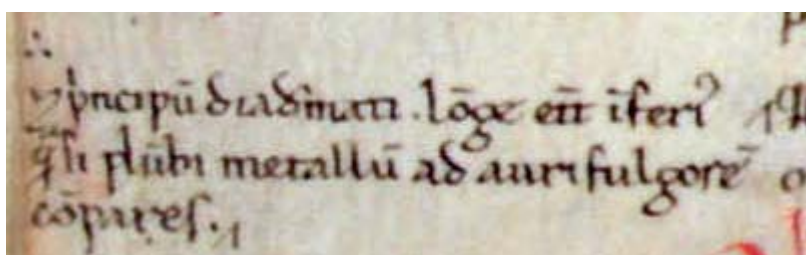 ⁊ pͥncipū diadi̅mati . lōge eēt īferiꝰ
q̄si plūbi metallū ad auri fulgorē
cōpares.